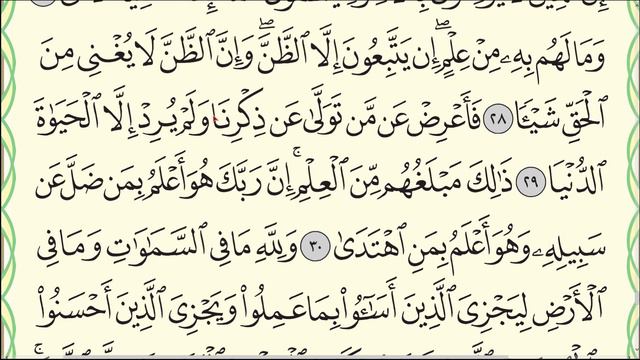 وَمَا لَهُم بِهِۦ مِنْ عِلْمٍ ۖ إِن يَتَّبِعُونَ إِلَّا ٱلظَّنَّ ۖ وَإِنَّ ٱلظَّنَّ لَا يُغْنِى مِنَ
ٱلْحَقِّ شَيْـًٔا ٢٨ فَأَعْرِضْ عَن مَّن تَوَلَّىٰ عَن ذِكْرِنَا وَلَمْ يُرِدْ إِلَّا ٱلْحَيَوٰةَ
ٱلدُّنْيَا ٢٩ ذَٰلِكَ مَبْلَغُهُم مِّنَ ٱلْعِلْمِ ۚ إِنَّ رَبَّكَ هُوَ أَعْلَمُ بِمَن ضَلَّ عَن
سَبِيلِهِۦ وَهُوَ أَعْلَمُ بِمَنِ ٱهْتَدَىٰ ٣٠ وَلِلَّهِ مَا فِى ٱلسَّمَـٰوَٰتِ وَمَا فِى
ٱلْأَرْضِ لِيَجْزِىَ ٱلَّذِينَ أَسَـٰٓـُٔوا۟ بِمَا عَمِلُوا۟ وَيَجْزِىَ ٱلَّذِينَ أَحْسَنُوا۟